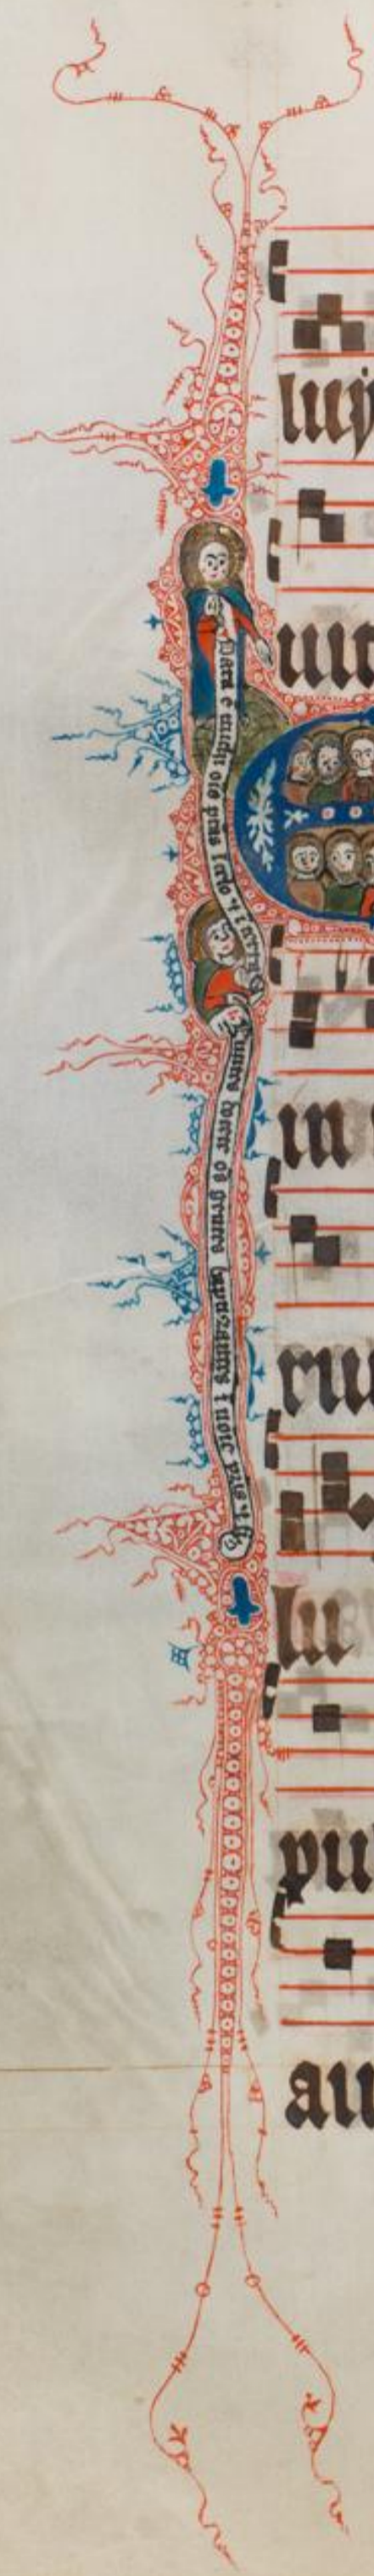 luy
in
Data e michi ois ptas i celo & i terra
Euntes docete os gentes baptizantes i noie pris & f
in
riu
lu
pu
au